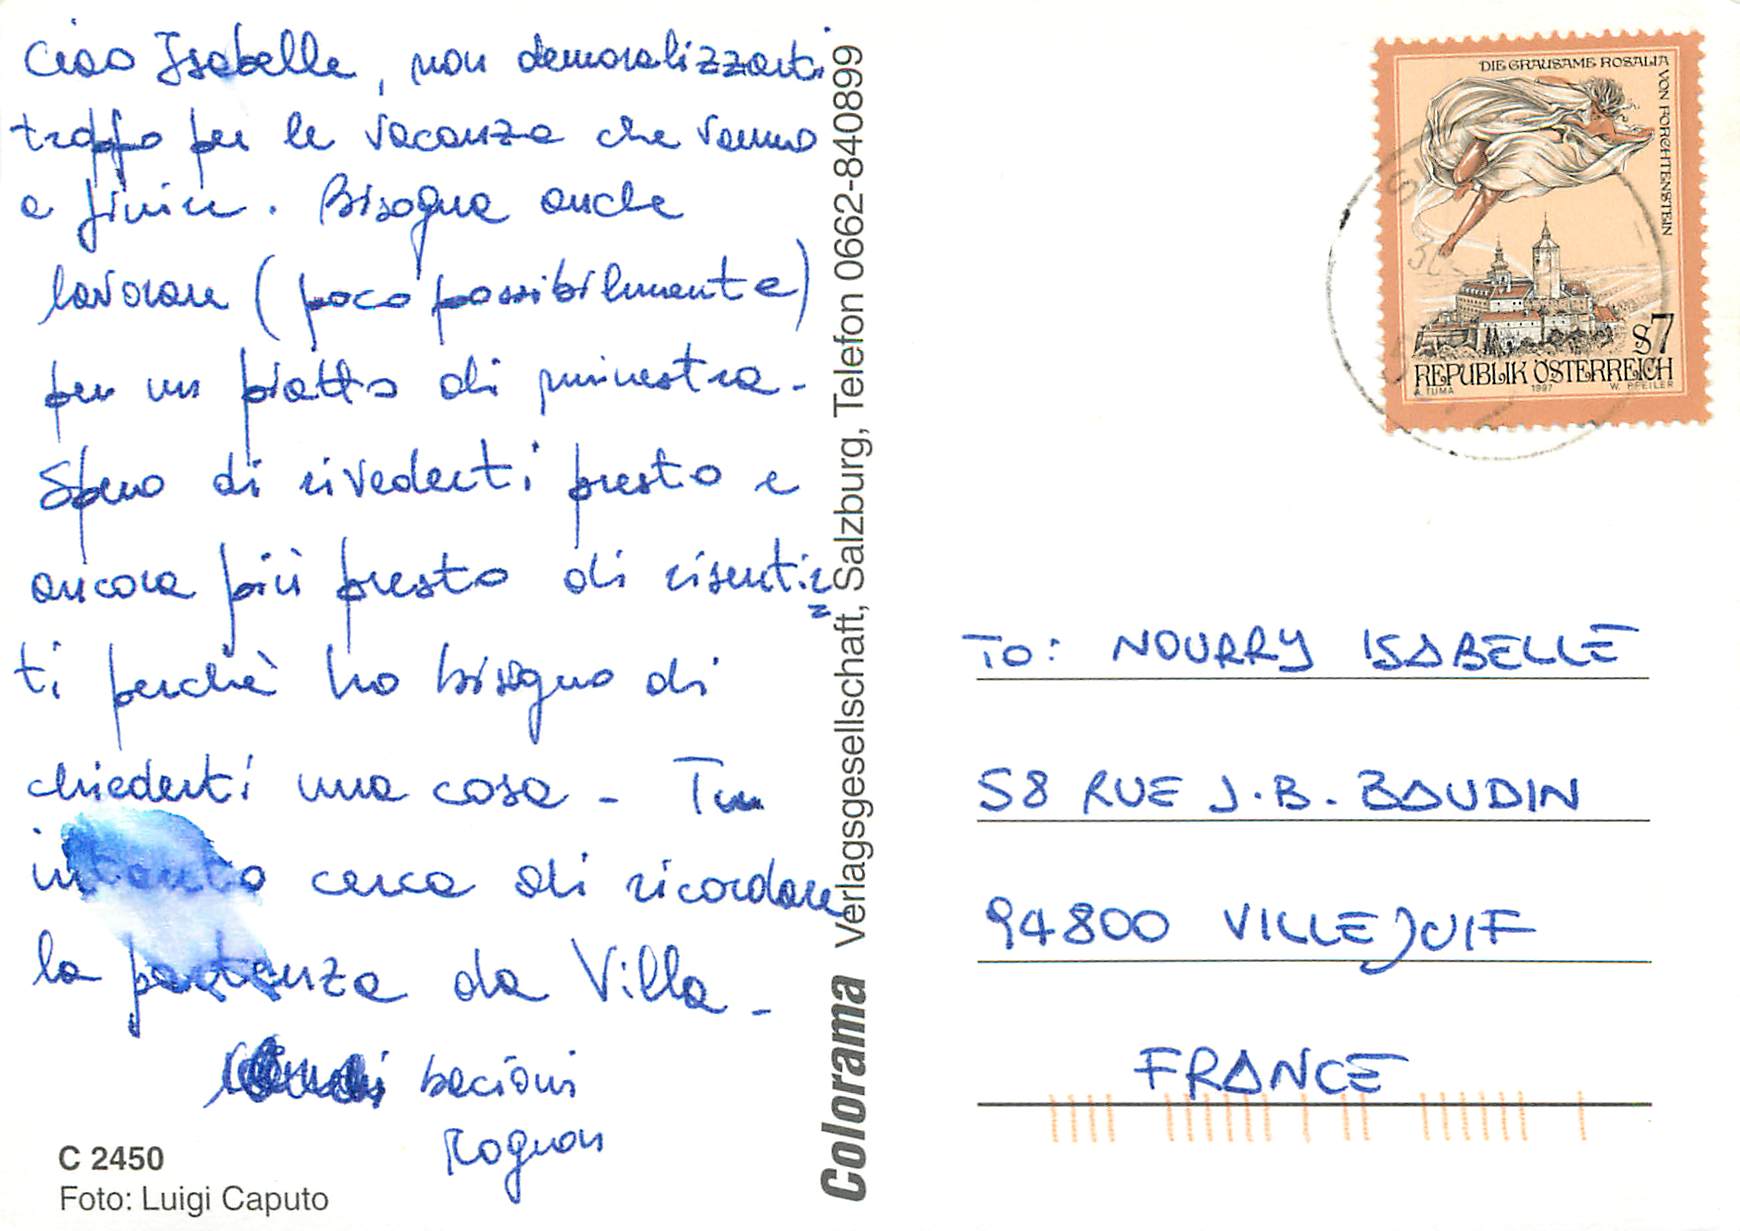 Ciao Isabelle, non demoralizzarti
troppo per le vacanze che vanno
a finire. Bisogna anche
lavorare (poco possibilmente)
per un piatto di minestra.
Spero di rivederti presto e
ancora più presto di risentir=
ti perchè ho bisogno di
chiederti una cosa - Tu
intanto cerca di ricordare
la partenza da Villa -
bacioni
C 2450
Foto: Luigi Caputo
Colorama Verlagsgesellschaft, Salzburg, Telefon 0662-840899
DIE GRAUSAME ROSALIA
VON FORCHTENSTEIN
S7
REPUBLIK ÖSTERREICH
A. TUMA 1997 W. PFEILER
TO: NOURRY ISABELLE
58 RUE J.B. BAUDIN
94800 VILLEJUIF
FRANCE